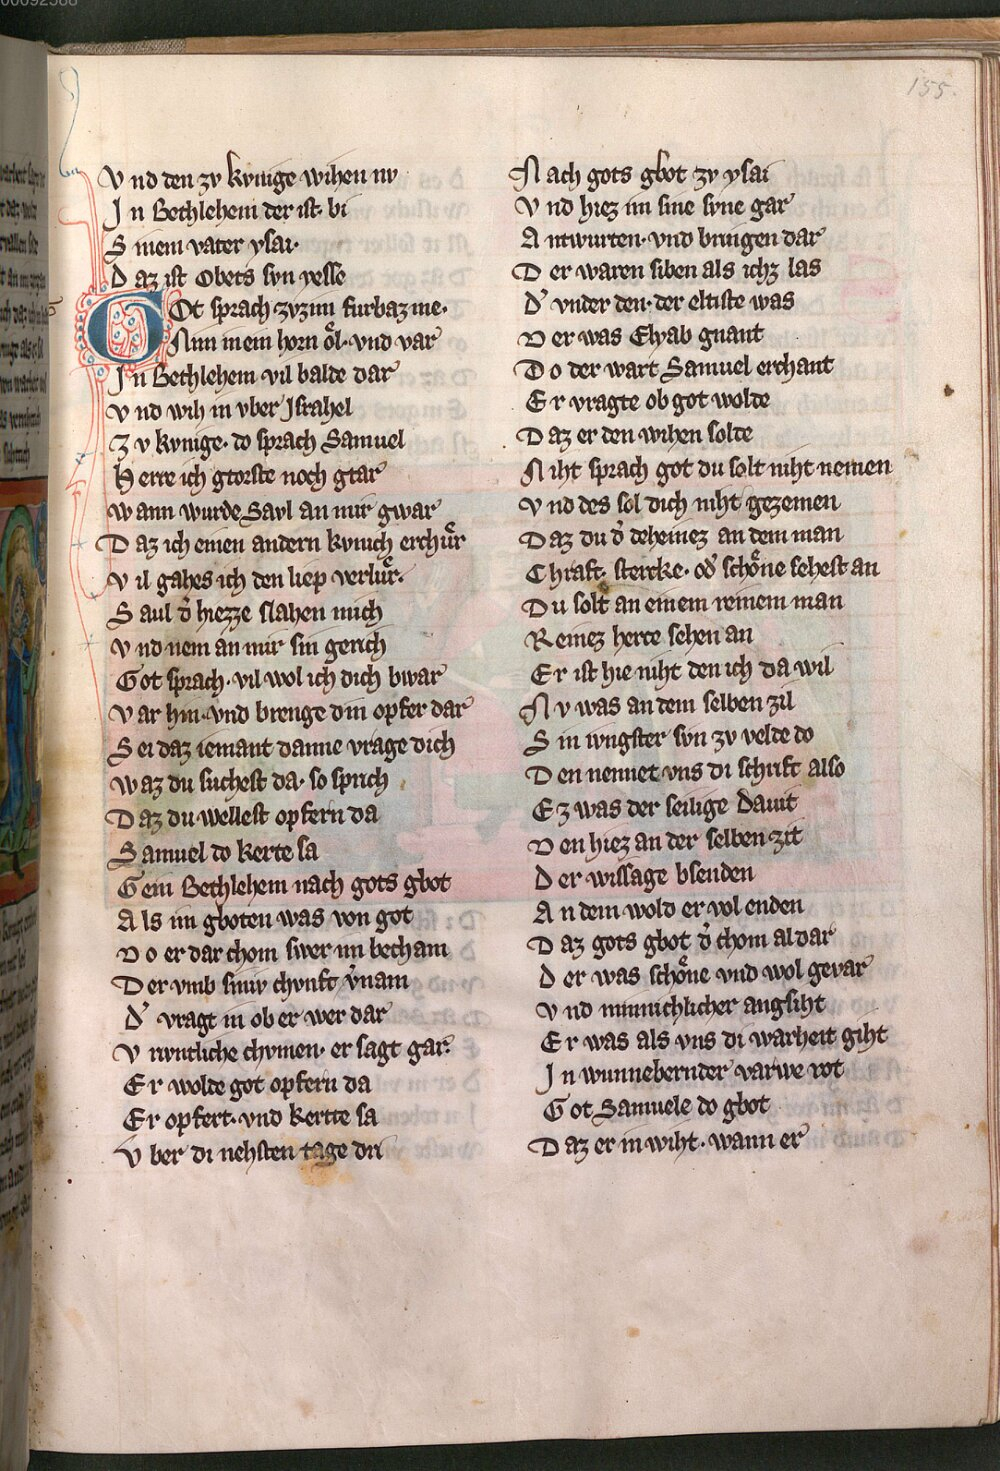 155.
Vnd den zv kvnige wihen nv
In Bethlehem der ist bi
Sinem vater ysai·
Daz ist Obets svn yesse
Got sprach zvzim furbaz me·
Nim mein horn oͤl· vnd var
In Bethlehem vil balde dar
Vnd wih in vber Israhel
Zv kvnige· do sprach Samuel
Herre ich gtorste noch gtar
Wann wurde Savl an mir gwar
Daz ich einen andern kvnich erchuͤr
Vil gahes ich den liep verluͤr·
Saul d' hiezze slahen mich
Vnd nem an mir sin gerich
Got sprach· vil wol ich dich bwar
Var hin· vnd brenge din opfer dar
Sei daz iemant danne vrage dich
Waz du suchest da· so sprich
Daz du wellest opfern da
Samuel do kerte sa
Gein Bethlehem nach gots gbot
Als im gboten was von got
Do er dar chom swer im becham
Der vmb siniv chvnft v'nam
D' vragt in ob er wer dar
Vrivntliche chvmen· er sagt gar·
Er wolde got opfern da
Er opfert· vnd kertte sa
Vber di nehsten tage dri
Nach gots gbot zv ysai
Vnd hiez im sine svne gar
Antwurten· vnd bringen dar
Der waren siben als ichz las
D' vnder den· der eltiste was
Der was Elyab gnant
Do der wart Samuel erchant
Er vragte ob got wolde
Daz er den wihen solde
Niht sprach got du solt niht nemen
Vnd des sol dich niht gezemen
Daz du d' deheinez an dem man
Chraft· stercke· od' schoͤne sehest an
Du solt an einem reinem man
Reinez herce sehen an
Er ist hie niht den ich da wil
Nv was an dem selben zil
Sin ivngster svn zv velde do
Den nennet vns di schrift also
Ez was der seilige Dauit
Den hiez an der selben zit
Der wissage bsenden
An dem wold er vol enden
Daz gots gbot d' chom al dar
Der was schoͤne vnd wol gevar
Vnd minnichlicher angsiht
Er was als vns di warheit giht
In wunnebernder varwe rot
Got Samuele do gbot
Daz er in wiht· wann er